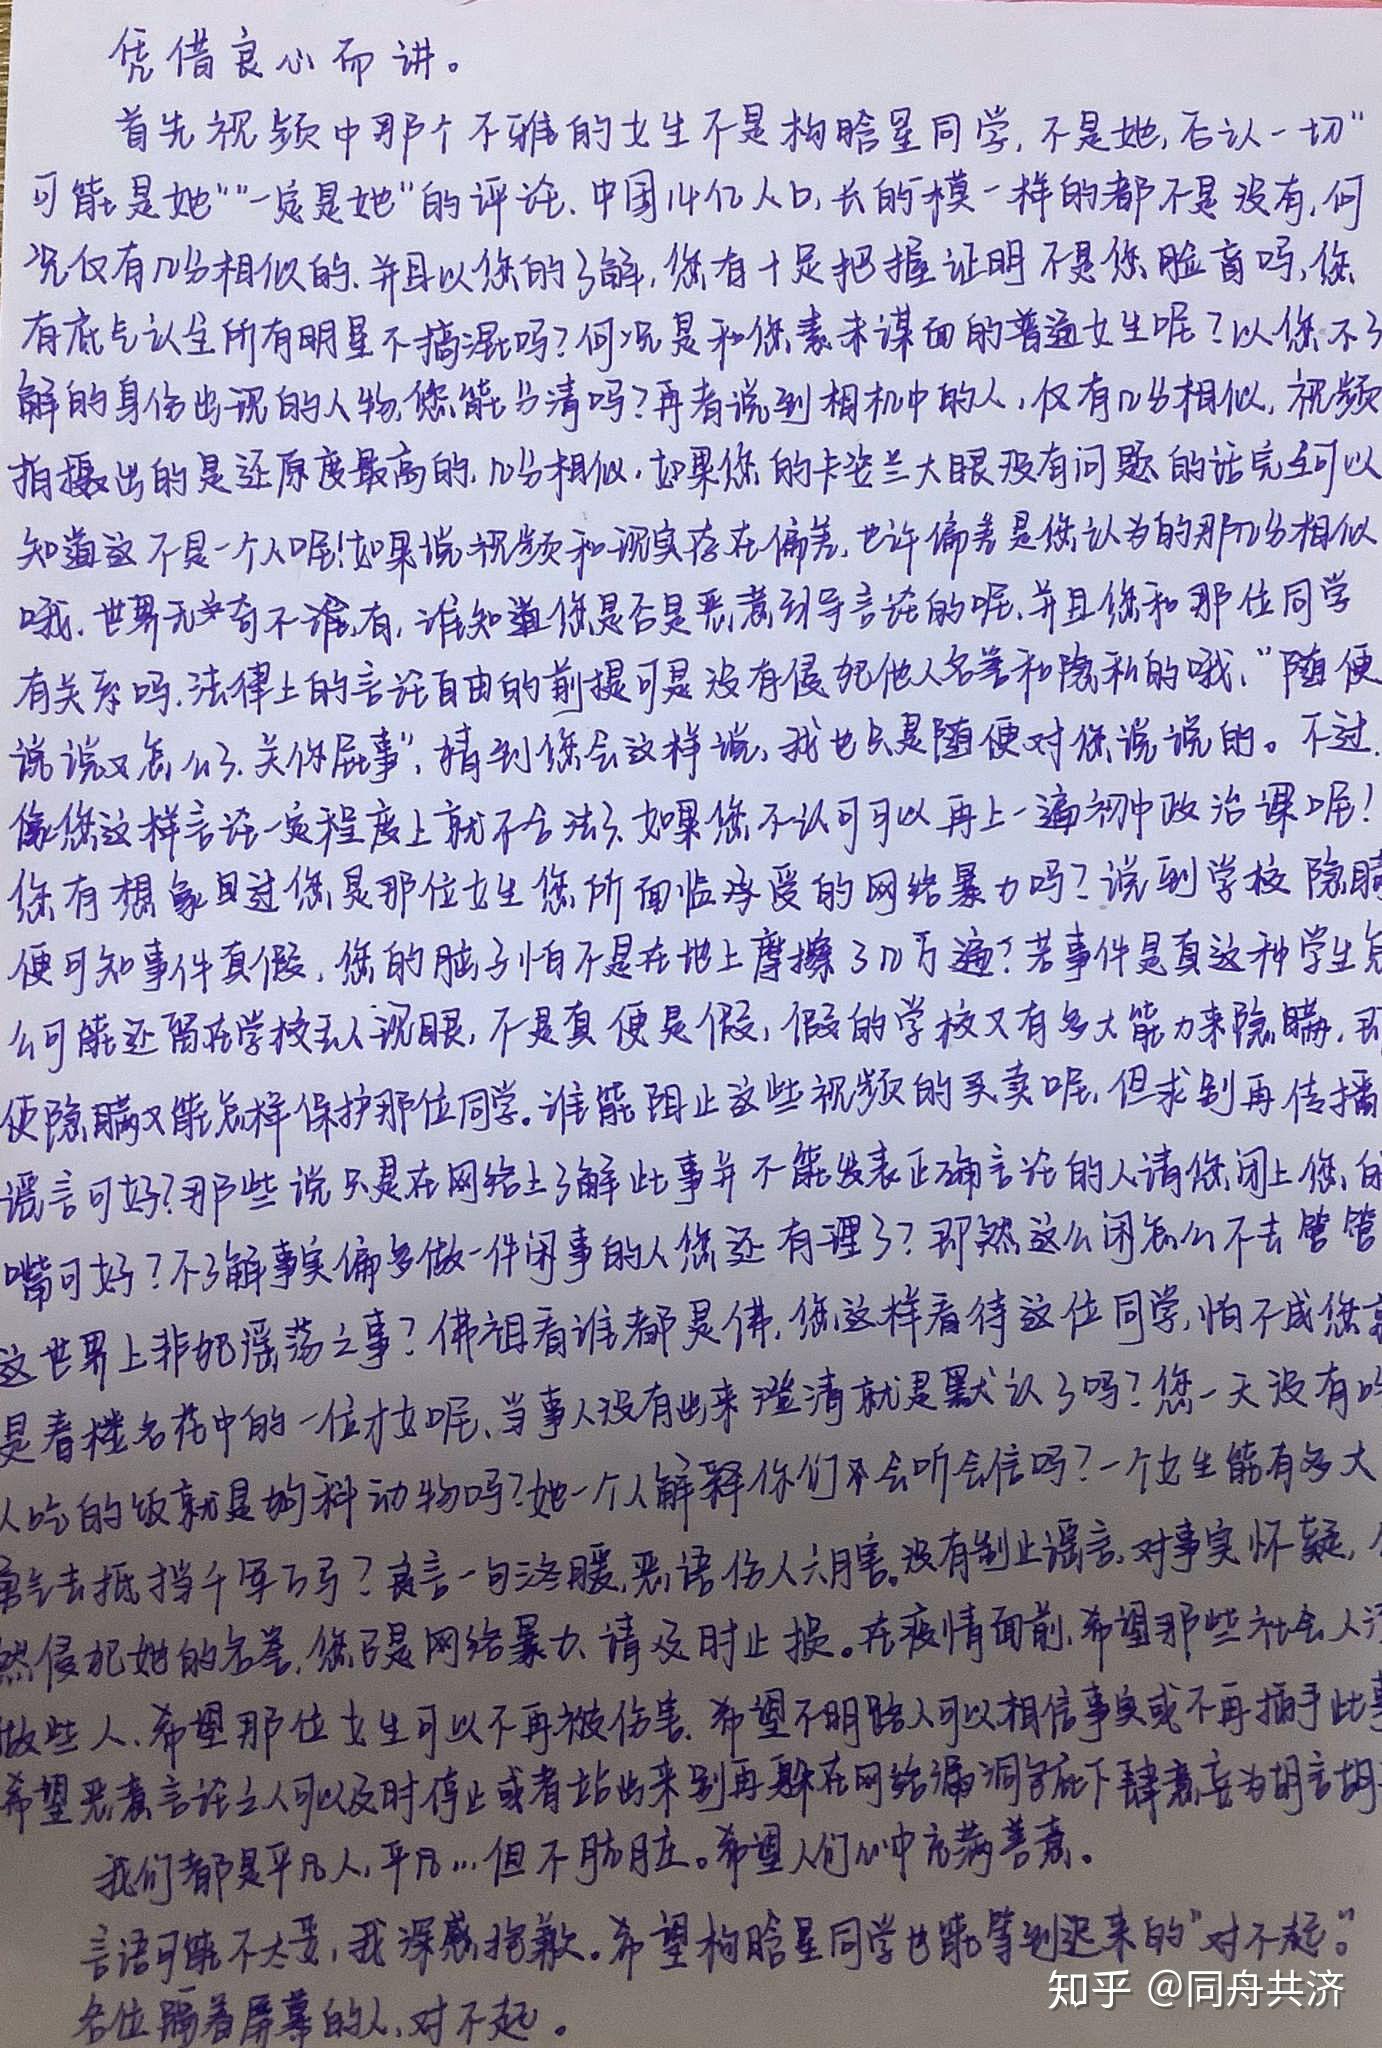 凭借良心而讲。
首先视频中那个不雅的女生不是构晗星同学，不是她，否认一切“
可能是她”“一定是她”的评论、中国14亿人口，长的一模一样的都不是没有，何
况仅有几分相似的、并且以您的了解，您有十足把握证明不是您脸盲吗，您
有底气认全所有明星不搞混吗？何况是和您素未谋面的普通女生呢？以您不了
解的身份出现的人物，您能分清吗？再者说到相机中的人，仅有几分相似，视频
拍摄出的是还原度最高的，几分相似，如果您的卡姿兰大眼没有问题的话完全可以
知道这不是一个人呢！如果说视频和现实存在偏差，也许偏差是您认为的那几分相似
哦、世界无奇不有，谁知道您是否是恶意引导言论的呢、并且您和那位同学
有关系吗、法律上的言论自由的前提可是没有侵犯他人名誉和隐私的哦、“随便
说说又怎么了、关你屁事”，猜到您会这样说，我也只是随便对您说说的。不过，
像您这样言论一定程度上就不合法了、如果您不认可可以再上一遍初中政治课呢！
您有想象过您是那位女生您所面临承受的网络暴力吗？说到学校隐瞒
便可知事件真假，您的脑子怕不是在地上摩擦了几万遍？若事件是真这种学生怎
么可能还留在学校丢人现眼，不是真便是假，假的学校又有多大能力来隐瞒，即
使隐瞒又能怎样保护那位同学。谁能阻止这些视频的买卖呢，但求别再传播
谣言可好？那些说只是在网络上了解此事并不能发表正确言论的人请您闭上您的
嘴可好？不了解事实偏多做一件闲事的人您还有理了？即然这么闲怎么不去管管
这世界上非犯谣荡之事？佛祖看谁都是佛，您这样看待这位同学，怕不成您就
是春楼名花中的一位才女呢、当事人没有出来澄清就是默认了吗？您一天没有吃
人吃的饭就是狗科动物吗？她一个人解释你们不会听会信吗？一个女生能有多大
勇气去抵挡千军万马？良言一句三冬暖，恶语伤人六月害。没有制止谣言，对事实怀疑，
然侵犯她的名誉，您已是网络暴力、请及时止损。在疫情面前，希望那些社会人
做些人、希望那位女生可以不再被伤害，希望不明路人可以相信事实或不再插手此事
希望恶意言论之人可以及时停止或者站出来别再躲在网络漏洞底下肆意妄为胡言胡
我们都是平凡人，平凡…但不肮脏。希望人们心中充满善意。
言语可能不太妥，我深感抱歉。希望构晗星同学也能等到迟来的“对不起”。
各位隔着屏幕的人，对不起。
知乎 @同舟共济